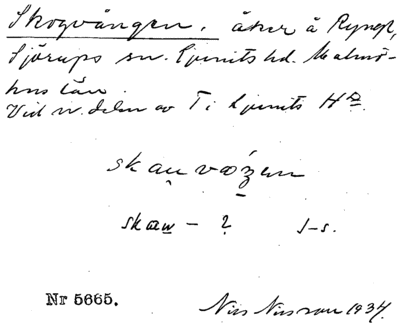 Skogvången. åker å Rynge,
Sjörups sn. Ljunits hd. Malmö-
hus län.
Vid n. delen av T i Ljunits Hd.
skauvåʒen
skaw – ? s-s.
Nr 5665. Nils Nilsson 1934.